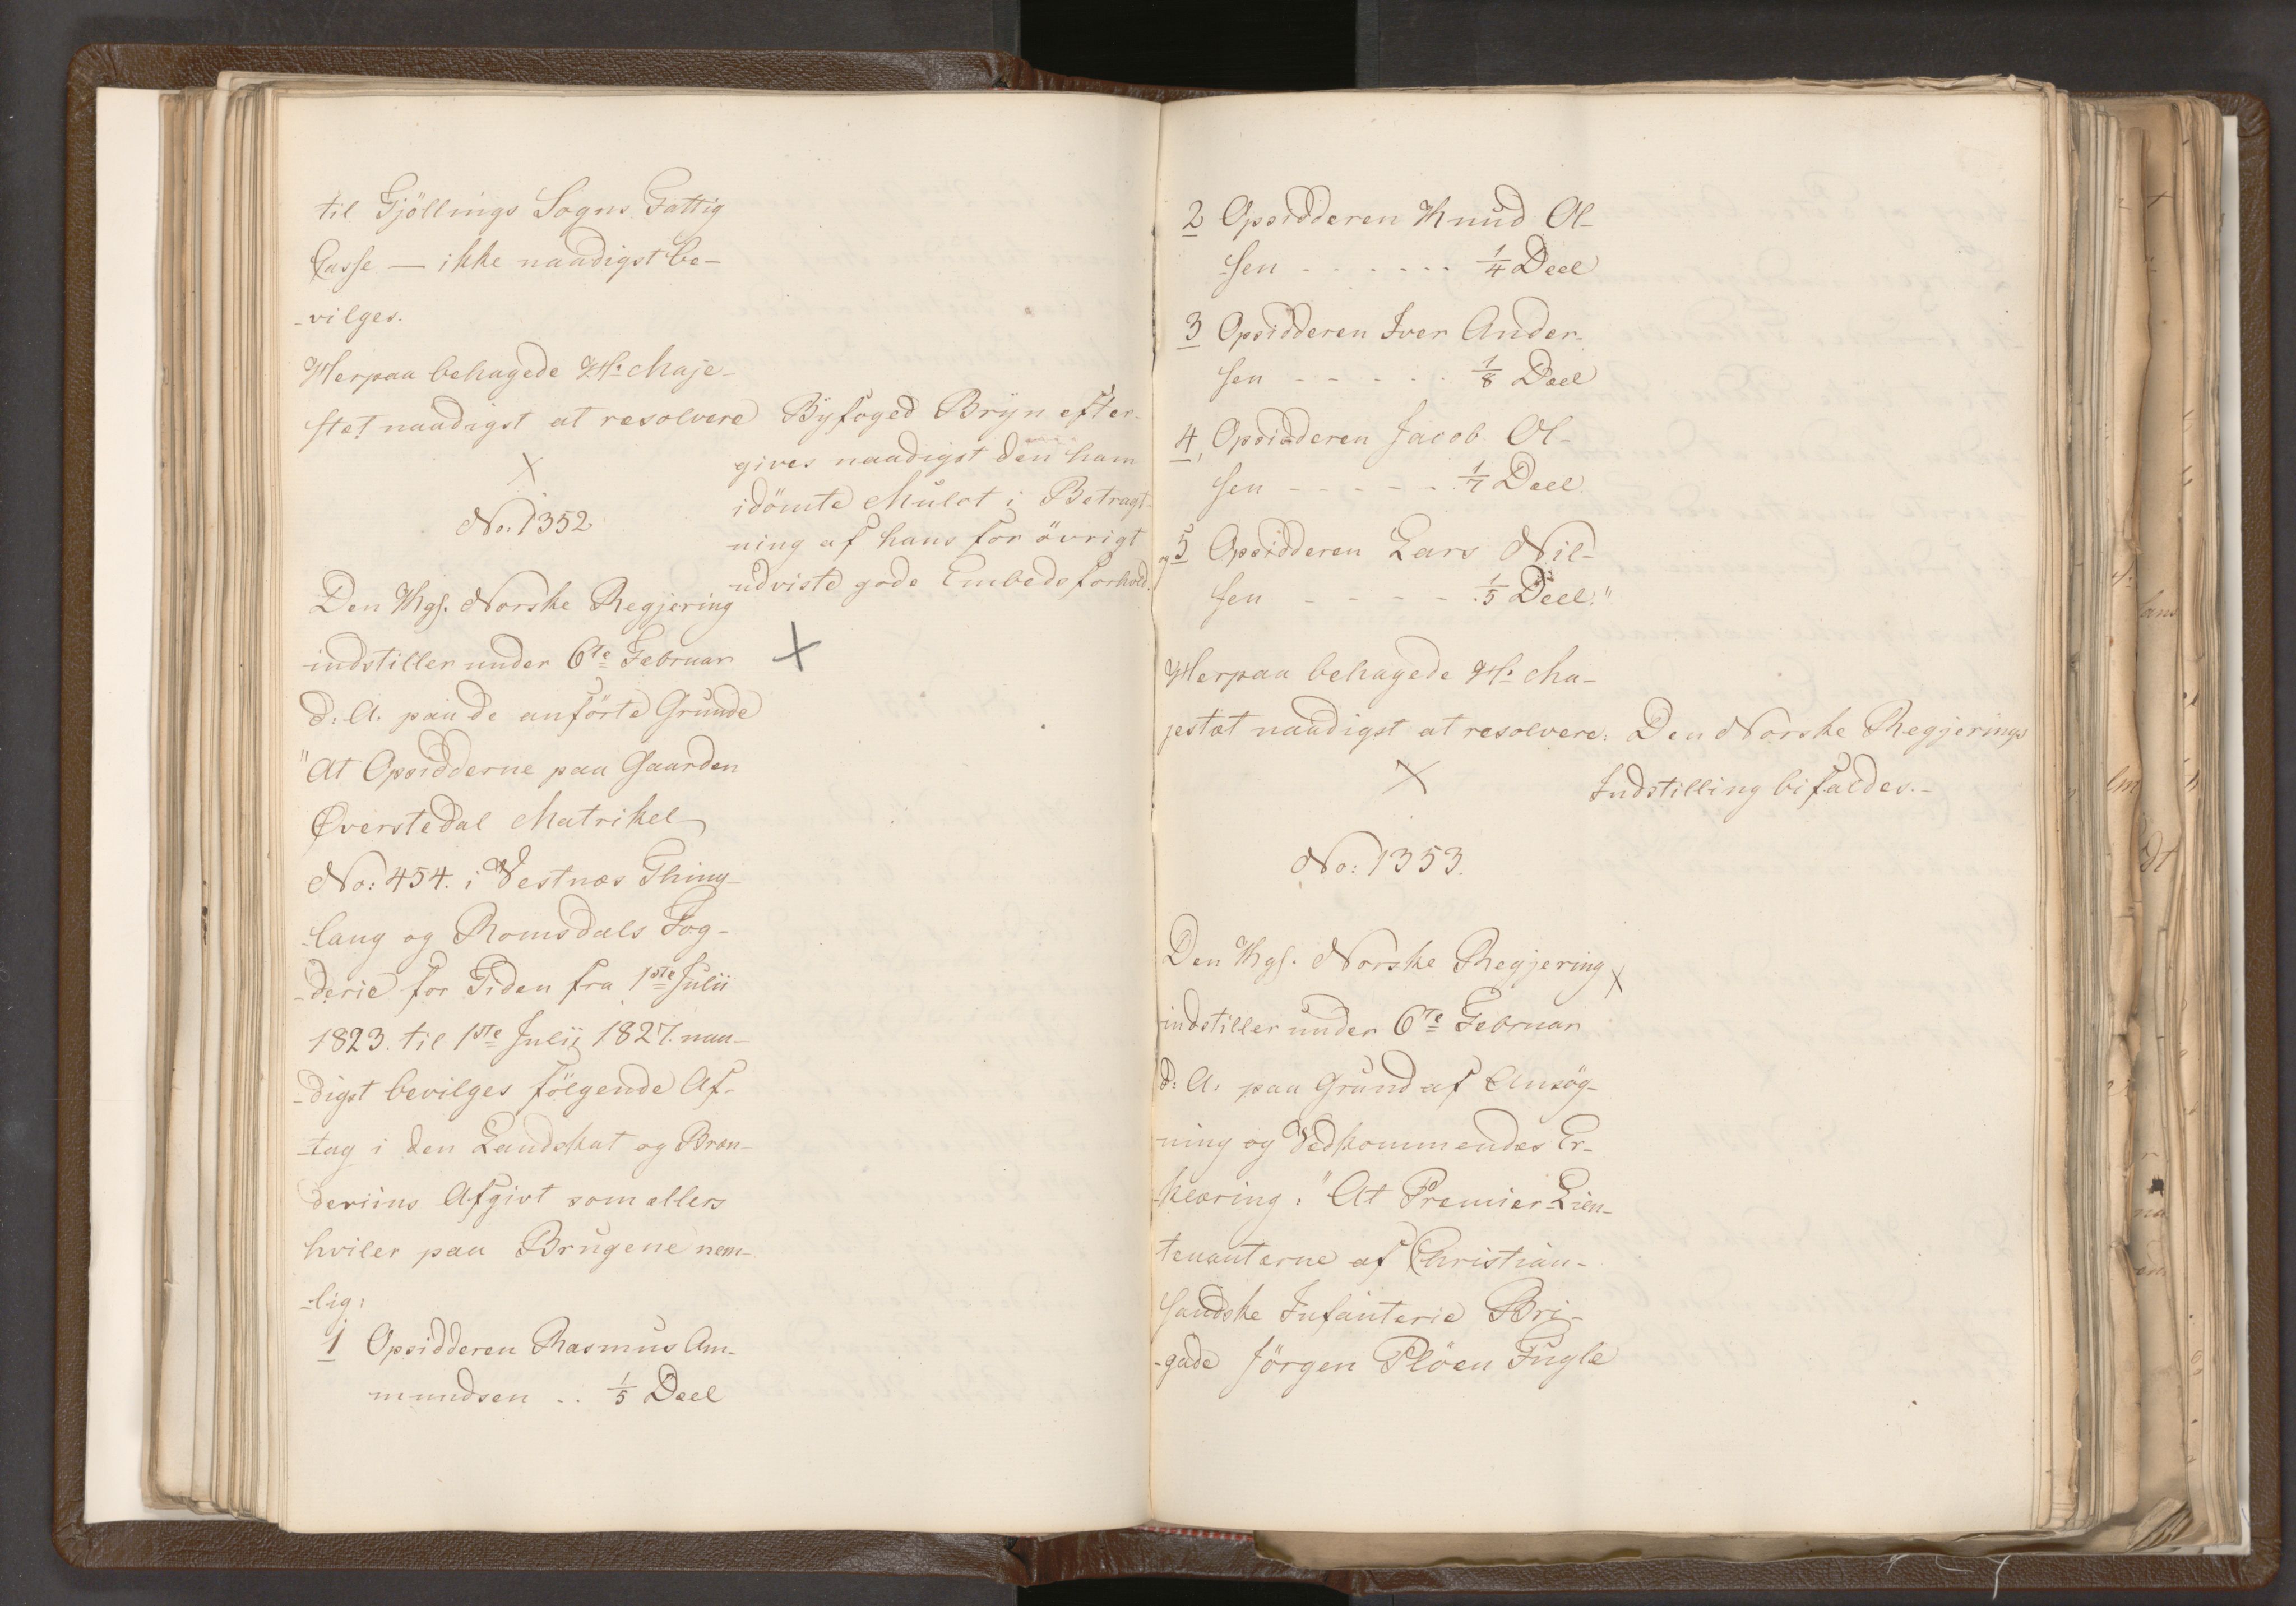 til Gjöllings Sogns Fattig
Casse — ikke naadigst be-
-vilges.
Herpaa behagede H: Maje-
stet naadigst at resolvere
Byfoged Bryn efter-
gives naadigst den ham
idömte Mulct i Betragt-
ning af hans for övrigt
udviste gode Embedsforhold.
No: 1352
Den Kgs. Norske Regjering
indstiller under 6te Februar
d: A. paa de anförte Grunde
"At Opsidderne paa Gaarden
Øverstedal Matrikel
No: 454. i Vestnæs Thing-
-laug og Romsdals Fog-
-derie for Tiden fra 1ste Julii
1823. til 1ste Julii 1827. naa-
-digst bevilges fölgende Af-
-tag i den Landskat og Bræn-
deviins Afgivt som ellers
hviler paa Brugene nem-
-lig:
1 Opsidderen Rasmus Am-
mundsen .. 1/5 Deel
2 Opsidderen Knud Ol-
sen - - - - - - 1/4 Deel
3 Opsidderen Iver Ander-
sen - - - - - - 1/8 Deel
4, Opsidderen Jacob Ol-
sen - - - - - 1/7 Deel
og 5 Opsidderen Lars Nil-
sen - - - - - 1/5 Deel."
Herpaa behagede H: Ma-
jestæt naadigst at resolvere:
Den Norske Regjerings
Indstilling bifaldes.-
No: 1353.
Den Kgs. Norske Regjering
indstiller under 6te Februar
d: A. paa Grund af Ansög-
ning og Vedkommendes Er-
klæring: "At Premier Lieu-
tenanterne af Christian-
sandske Infanterie Bri-
-gade Jörgen Plöen Fugle